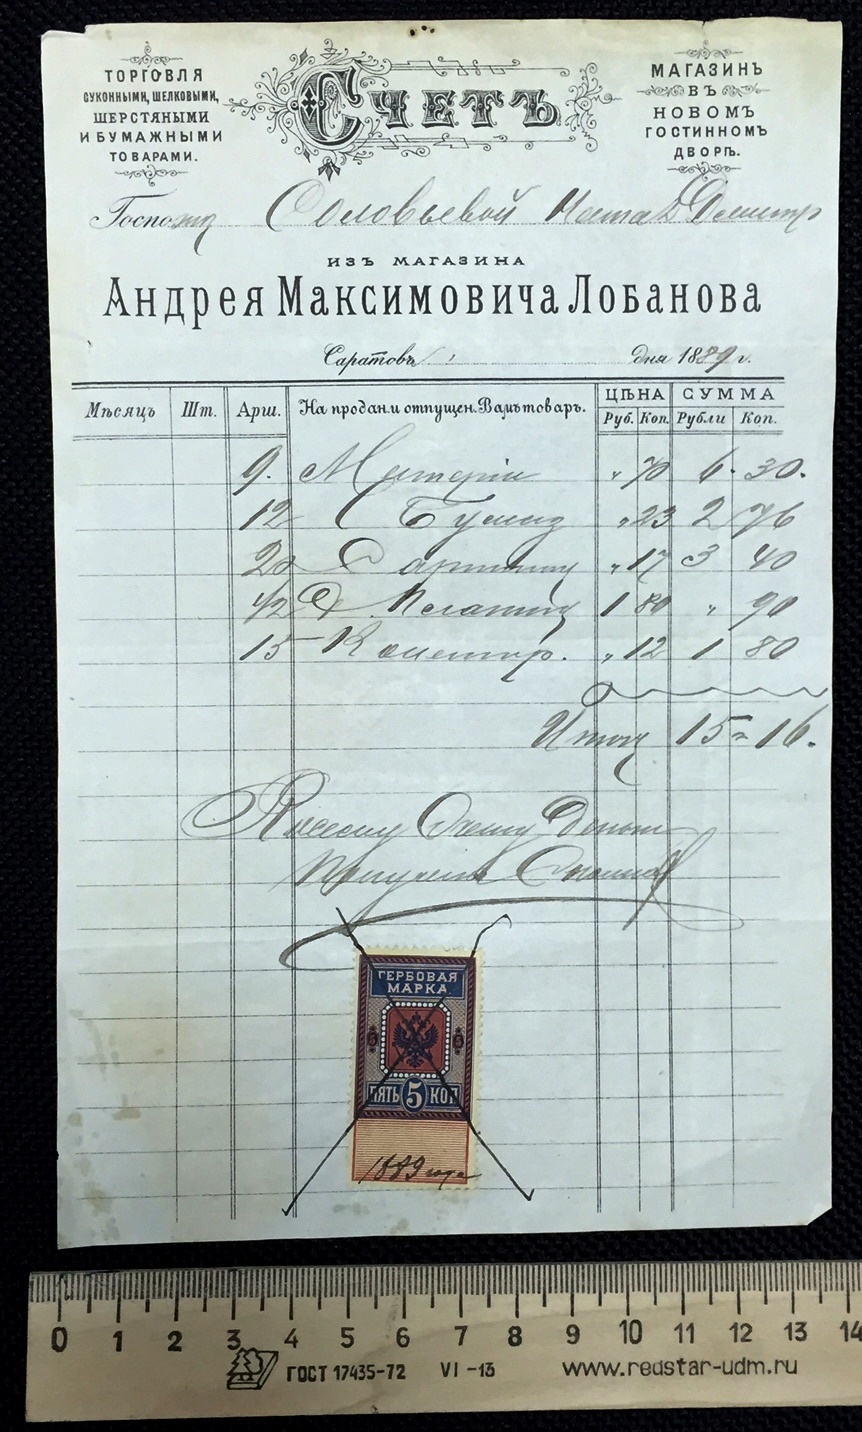 ТОРГОВЛЯ
СУКОННЫМИ, ШЕЛКОВЫМИ,
ШЕРСТЯНЫМИ
И БУМАЖНЫМИ
ТОВАРАМИ.
СЧЕТЪ
МАГАЗИНЪ
ВЪ
НОВОМЪ
ГОСТИННОМЪ
ДВОРѢ.
Госпожѣ Соловьевой
ИЗЪ МАГАЗИНА
Андрея Максимовича Лобанова
Саратовъ дня 1889 г.
Мѣсяцъ Шт. Арш. На продан. и отпущен. Вамъ товаръ. ЦѢНА СУММА
Руб. Коп. Рубли Коп.
9. Матеріи " 70 6. 30.
12 " 23 2 76
20 " 17 3 40
1/2 1 80 " 90
15 " 12 1 80
Итого 15 = 16.
ГЕРБОВАЯ
МАРКА
5 5
ПЯТЬ 5 КОП
1889 года
0 1 2 3 4 5 6 7 8 9 10 11 12 13 14
ГОСТ 17435-72 VI-13 www.redstar-udm.ru